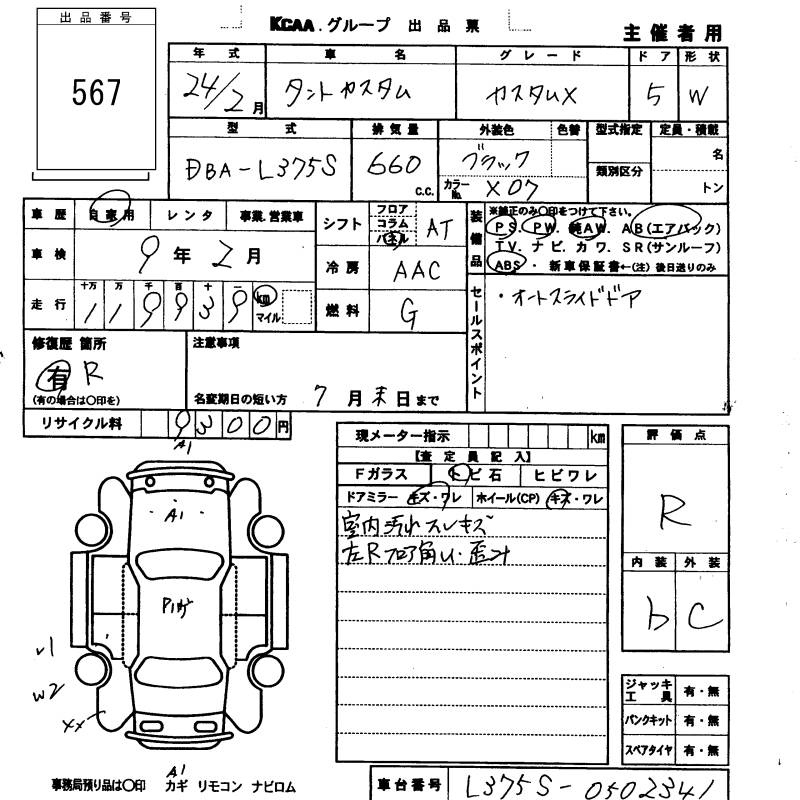 出品番号
567
KCAA.グループ 出品票
主催者用
年式 車名 グレード ドア 形状
24/2月 タントカスタム カスタムX 5 W
型式 排気量 外装色 色替 型式指定 定員・積載
DBA-L375S 660 c.c. ブラック 名
カラーNo. X07 類別区分 トン
車歴 自家用 レンタ 事業.営業車
シフト フロア コラム パネル AT
装備品 ※純正のみ〇印をつけて下さい。
PS. PW. 純AW. AB(エアバック)
TV. ナビ. カワ. SR(サンルーフ)
ABS・新車保証書←(注)後日送りのみ
車検 9年2月
冷房 AAC
走行 十万 万 千 百 十 一
119939 km マイル
燃料 G
セールスポイント
・オートスライドドア
修復歴 箇所
有 R
(有の場合は〇印を)
注意事項
名変期日の短い方 7月末日まで
リサイクル料 9300円
現メーター指示 km
【査定員記入】
Fガラス トビ石 ヒビワレ
ドアミラー キズ・ワレ ホイール(CP) キズ・ワレ
室内汚れスレキズ
左Rフロア角U・歪み
評価点
R
内装 外装
b C
A1
A1
P1
v1
w2
xx
A1
ジャッキ工具 有・無
パンクキット 有・無
スペアタイヤ 有・無
事務局預り品は〇印 カギ リモコン ナビロム
車台番号 L375S-0502341